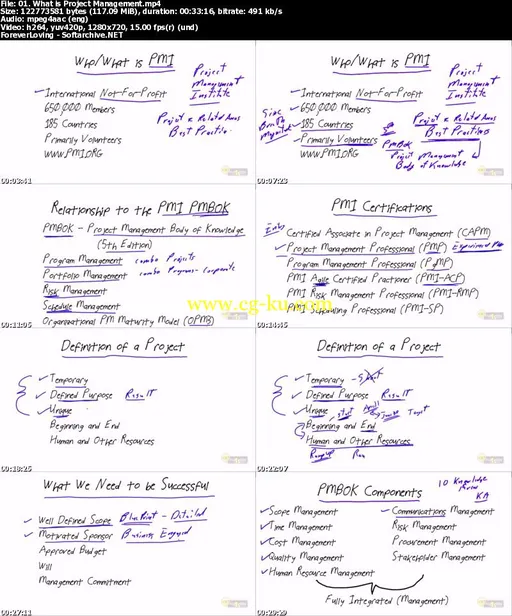 File: 01. What is Project Management.mp4
Size: 122773581 bytes (117.09 MiB), duration: 00:33:16, bitrate: 491 kb/s
Audio: mpeg4aac (eng)
Video: h264, yuv420p, 1280x720, 15.00 fps(r) (und)
ForeverLoving - Softarchive.NET
Who/What is PMI
Project
Management
Institute
International Not-For-Profit
650,000 Members
185 Countries
Primarily Volunteers
WWW.PMI.ORG
Project & Related Areas
Best Practices
00:03:41
Who/What is PMI
Project
Management
Institute
International Not-For-Profit
650,000 Members
185 Countries
Primarily Volunteers
WWW.PMI.ORG
Size
Project & Related Areas
Best Practices
PMBOK
Project Management
Body of Knowledge
00:07:23
Relationship to the PMI PMBOK
PMBOK - Project Management Body of Knowledge
(5th Edition)
Program Management combo Projects
Portfolio Management combo Programs - Corporate
Risk Management
Schedule Management
Organizational PM Maturity Model (OPM3)
00:11:05
PMI Certifications
Certified Associate in Project Management (CAPM)
Project Management Professional (PMP) Experienced PM
Program Management Professional (PgMP)
PMI Agile Certified Practioner (PMI-ACP)
PMI Risk Management Professional (PMI-RMP)
PMI Scheduling Professional (PMI-SP)
00:14:45
www.cg-ku.com
Definition of a Project
Temporary
Defined Purpose
Unique
Beginning and End
Human and Other Resources
00:18:25
Definition of a Project
Temporary
Defined Purpose
Unique Start
Beginning and End
Human and Other Resources
Run
00:22:07
What We Need to be Successful
Well Defined Scope Blueprint - Detailed
Motivated Sponsor Business Engaged
Approved Budget
Will
Management Commitment
00:27:11
PMBOK Components
10 Knowledge
Areas
KA
Scope Management
Time Management
Cost Management
Quality Management
Human Resource Management
Communications Management
Risk Management
Procurement Management
Stakeholder Management
Fully Integrated (Management)
00:29:29